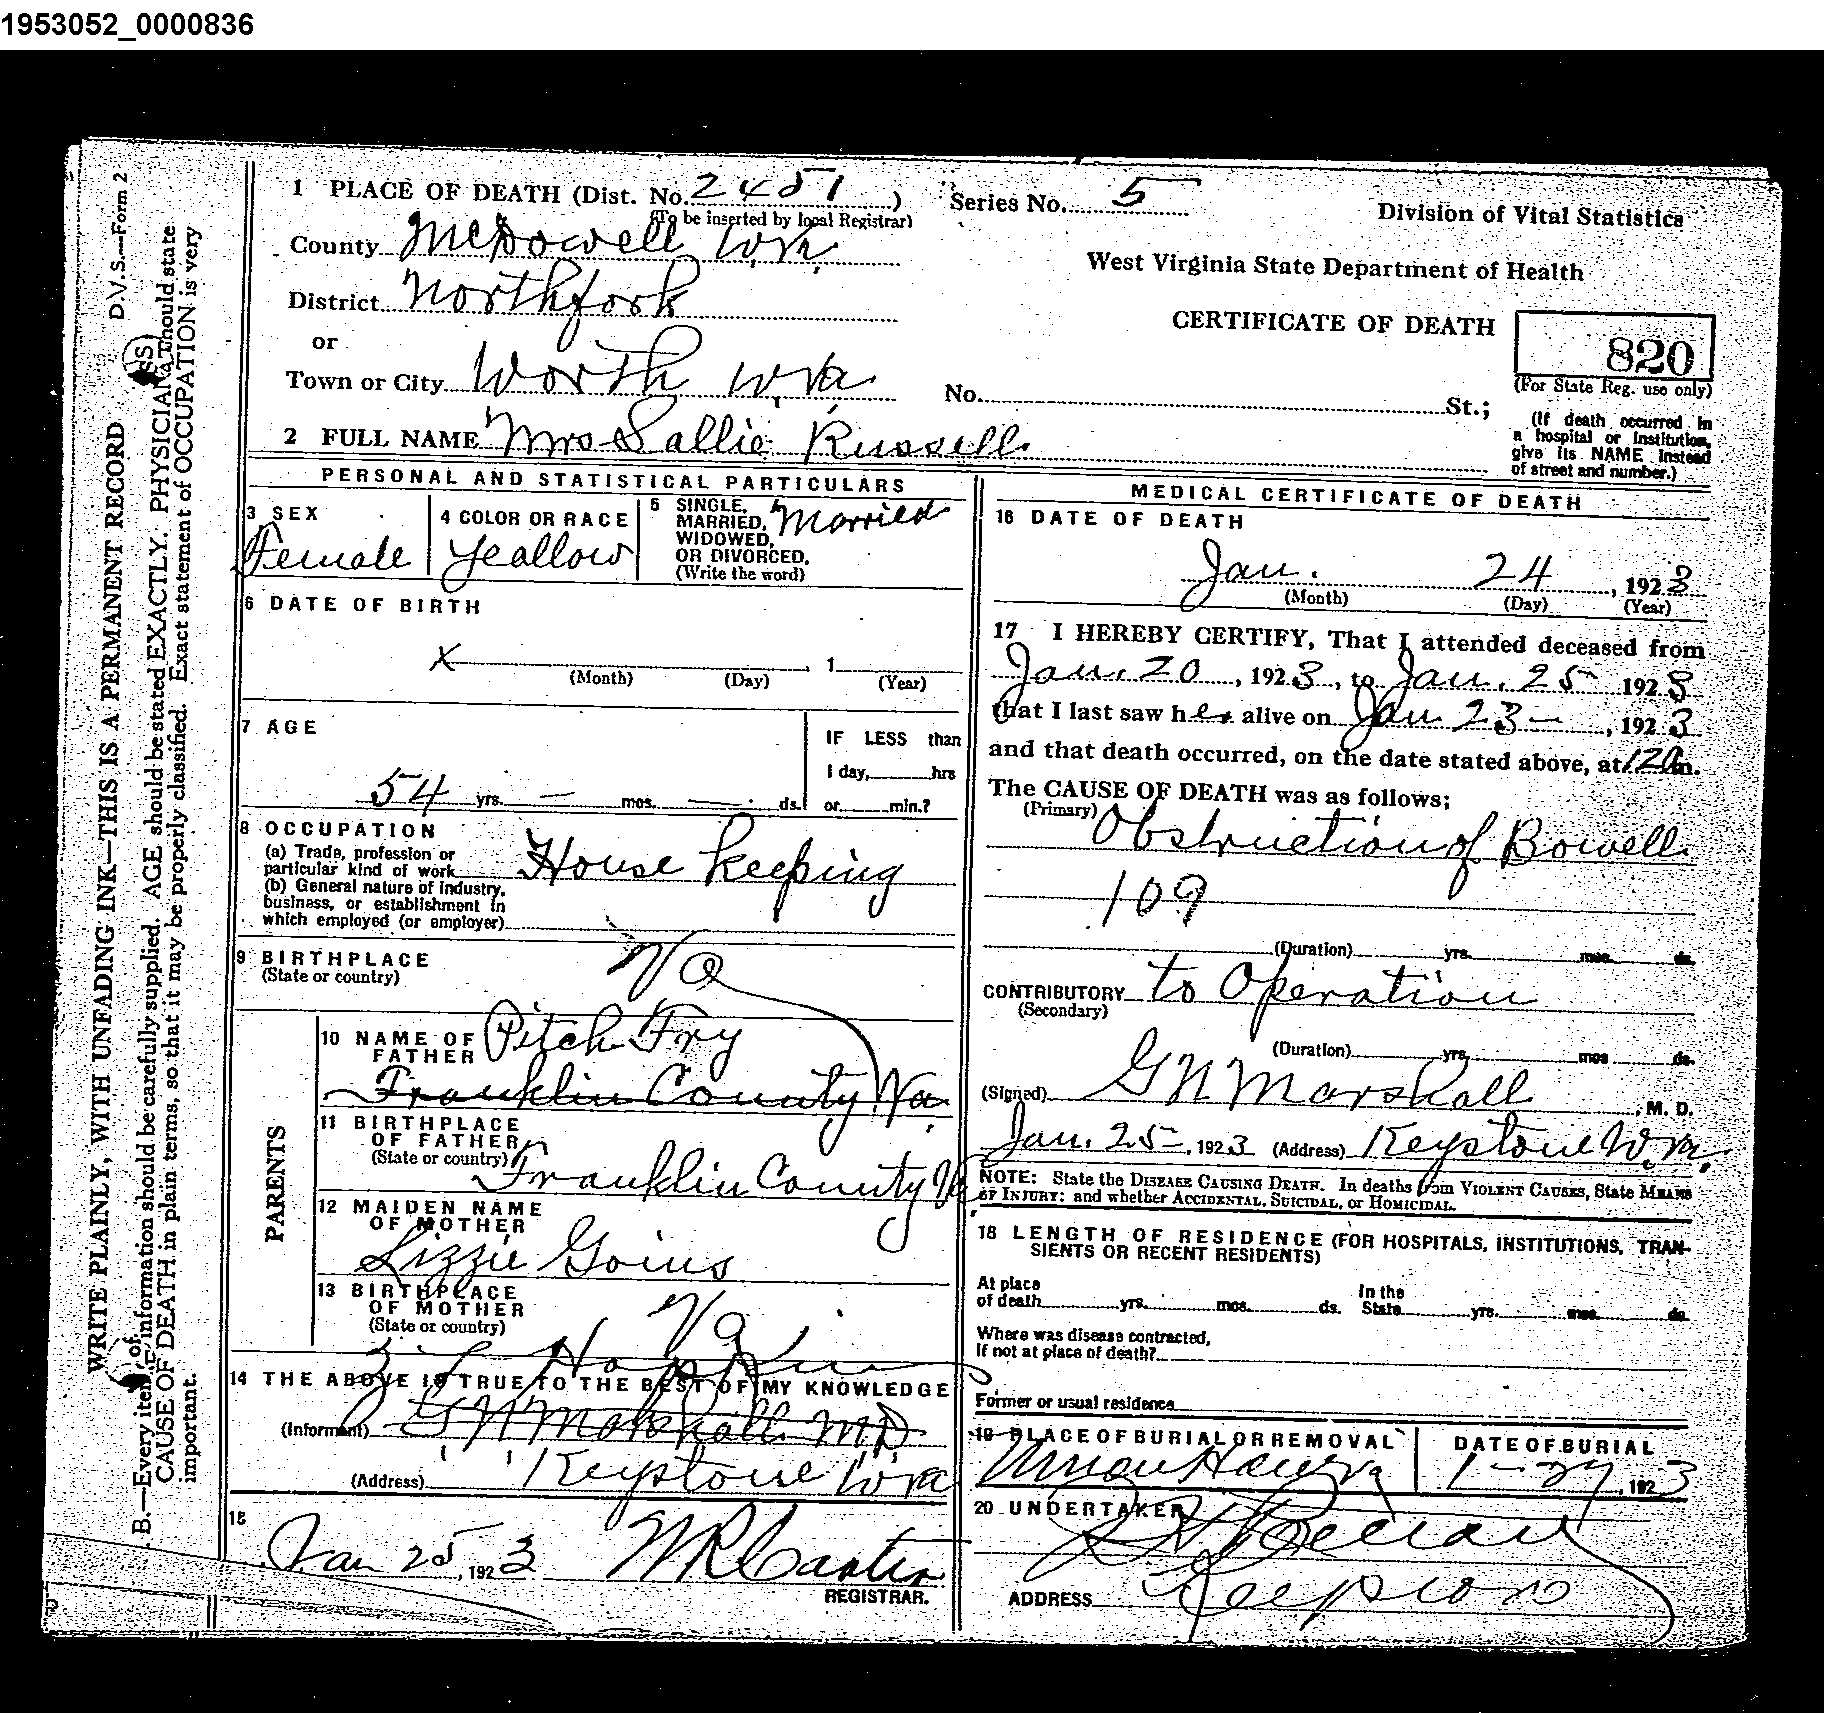 1953052_0000836
D.V.S.—Form 2
WRITE PLAINLY, WITH UNFADING INK—THIS IS A PERMANENT RECORD
B.—Every item of information should be carefully supplied. AGE should be stated EXACTLY. PHYSICIANS should state
CAUSE OF DEATH in plain terms, so that it may be properly classified. Exact statement of OCCUPATION is very
important.
1 PLACE OF DEATH (Dist. No. 2451)
(To be inserted by local Registrar)
Series No. 5
Division of Vital Statistics
County McDowell W.Va.
West Virginia State Department of Health
District Northfork
CERTIFICATE OF DEATH
820
(For State Reg. use only)
or
Town or City Worth W.Va.
No. St.;
(If death occurred in
a hospital or institution,
give its NAME instead
of street and number.)
2 FULL NAME Mrs Sallie Russell
PERSONAL AND STATISTICAL PARTICULARS
3 SEX
Female
4 COLOR OR RACE
Yeallow
5 SINGLE,
MARRIED,
WIDOWED,
OR DIVORCED.
(Write the word)
Married
6 DATE OF BIRTH
x 1
(Month) (Day) (Year)
7 AGE
54 yrs. — mos. — ds.
IF LESS than
1 day, hrs
or min.?
8 OCCUPATION
(a) Trade, profession or
particular kind of work House keeping
(b) General nature of industry,
business, or establishment in
which employed (or employer)
9 BIRTHPLACE
(State or country)
Va
PARENTS
10 NAME OF
FATHER
Pitch Fry
Franklin County Va.
11 BIRTHPLACE
OF FATHER
(State or country)
Franklin County Va.
12 MAIDEN NAME
OF MOTHER
Lizzie Goins
13 BIRTHPLACE
OF MOTHER
(State or country)
Va
14 THE ABOVE IS TRUE TO THE BEST OF MY KNOWLEDGE
(Informant) G N Marshall M.D.
(Address) Keystone W.Va
15
Jan 25, 1923
REGISTRAR.
MEDICAL CERTIFICATE OF DEATH
16 DATE OF DEATH
Jan. 24, 1923
(Month) (Day) (Year)
17 I HEREBY CERTIFY, That I attended deceased from
Jan. 20, 1923, to Jan. 25 1923
that I last saw her alive on Jan 23—, 1923
and that death occurred, on the date stated above, at 12 a m.
The CAUSE OF DEATH was as follows;
(Primary) Obstruction of Bowell
109
(Duration) yrs. mos. ds.
CONTRIBUTORY to Operation
(Secondary)
(Duration) yrs. mos ds.
(Signed) G N Marshall, M. D.
Jan. 25—, 1923 (Address) Keystone W.Va.
NOTE: State the DISEASE CAUSING DEATH. In deaths from VIOLENT CAUSES, State MEANS
OF INJURY: and whether ACCIDENTAL, SUICIDAL, or HOMICIDAL.
18 LENGTH OF RESIDENCE (FOR HOSPITALS, INSTITUTIONS, TRAN-
SIENTS OR RECENT RESIDENTS)
At place
of death yrs. mos. ds.
In the
State yrs. mos. ds.
Where was disease contracted,
If not at place of death?
Former or usual residence
19 PLACE OF BURIAL OR REMOVAL
DATE OF BURIAL
1—27, 1923
20 UNDERTAKER
ADDRESS